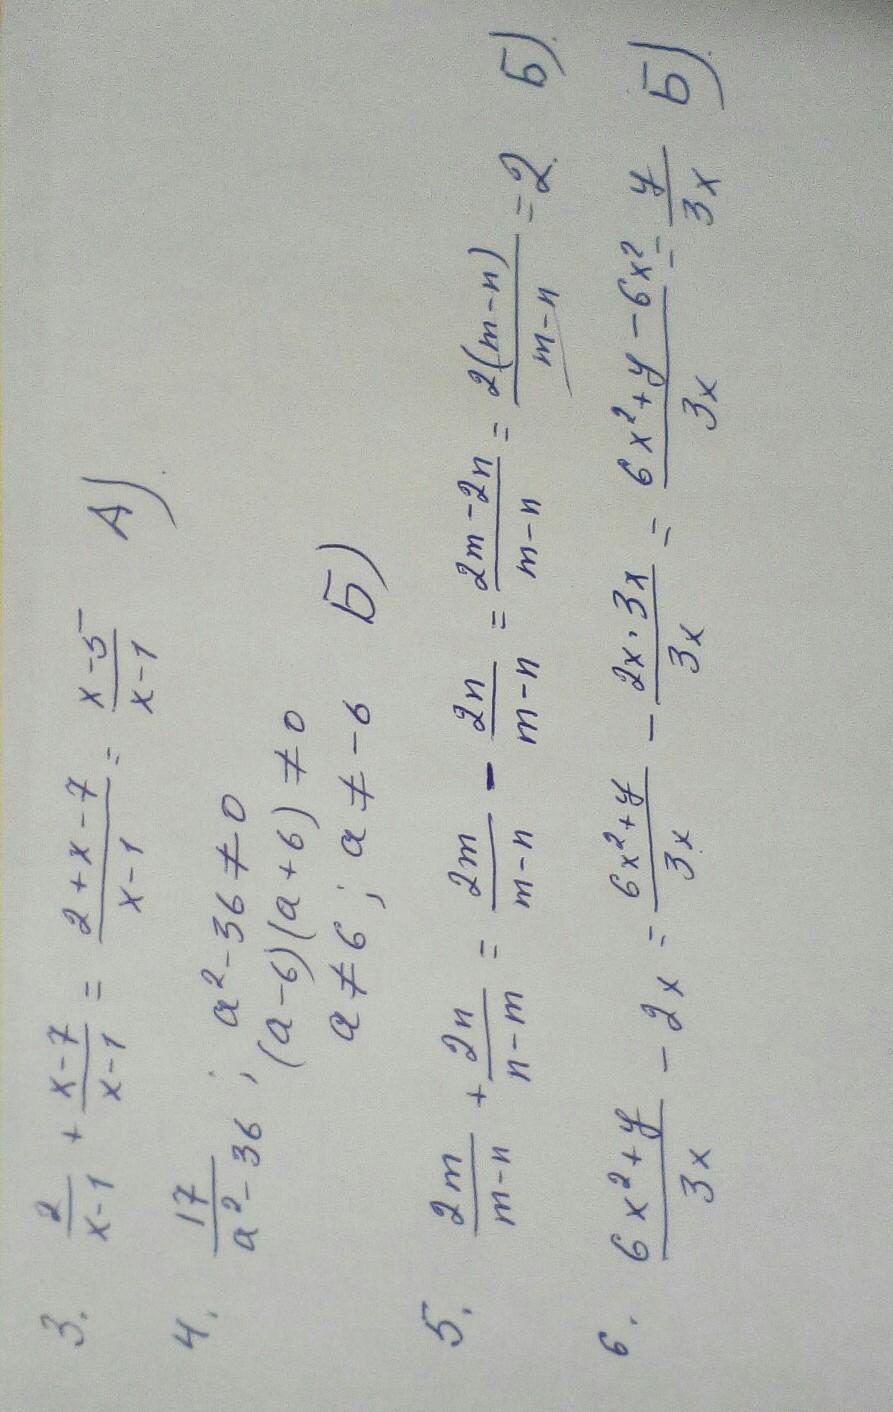 3. 2/(x-1) + (x-7)/(x-1) = (2+x-7)/(x-1) = (x-5)/(x-1) А)
4. 17/(a²-36); a²-36≠0
(a-6)(a+6)≠0
a≠6; a≠-6 Б)
5. 2m/(m-n) + 2n/(n-m) = 2m/(m-n) - 2n/(m-n) = (2m-2n)/(m-n) = 2(m-n)/(m-n) = 2 Б)
6. (6x²+y)/3x - 2x = (6x²+y)/3x - (2x·3x)/3x = (6x²+y-6x²)/3x = y/3x Б)